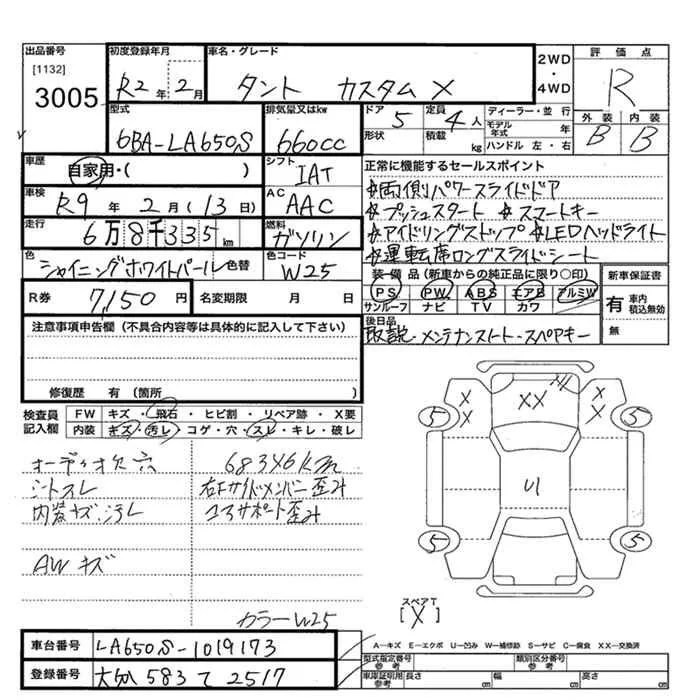 出品番号 初度登録年月 車名・グレード 2WD・4WD 評価点
[1132]
3005 R2年2月 タント カスタム X R
型式 排気量又はkw ドア 5 定員 4人 ディーラー・並行 外装 内装
6BA-LA650S 660cc 形状 積載 kg モデル年式 年 B B
ハンドル 左・右
車歴 シフト 正常に機能するセールスポイント
自家用・( ) IAT ☆両側パワースライドドア
車検 AC ☆プッシュスタート ☆スマートキー
R9年2月(13日) AAC ☆アイドリングストップ ☆LEDヘッドライト
走行 燃料 ☆運転席ロングスライドシート
6万8千335km ガソリン
色 色替 色コード 装備品(新車からの純正品に限り○印) 新車保証書
シャイニングホワイトパール W25 PS PW ABS エアB アルミW 有 車内積込無効
R券 7,150円 名変期限 月 日 サンルーフ ナビ TV カワ 無
後日品
注意事項申告欄(不具合内容等は具体的に記入して下さい) 取説・メンテナンスノート・スペアキー
修復歴 有(箇所
検査員記入欄 FW キズ・飛石・ヒビ割・リペア跡・X要
内装 キズ・汚レ・コゲ・穴・スレ・キレ・破レ
オーディオ欠 穴 68346km
シートスレ 右Fサイドメンバー歪み
内装キズ・汚レ コアサポート歪み
AWキズ
カラーW25
X X XX X X
5 5
U1
5 5
スペアT
[X]
A―キズ E―エクボ U―凹み W―補修跡 S―サビ C―腐食 XX―交換済
車台番号 LA650S-1019173 型式指定番号 参考 類別区分番号 参考
登録番号 大分 583 て 2517 車庫証明用 参考 長さ cm 幅 cm 高さ cm